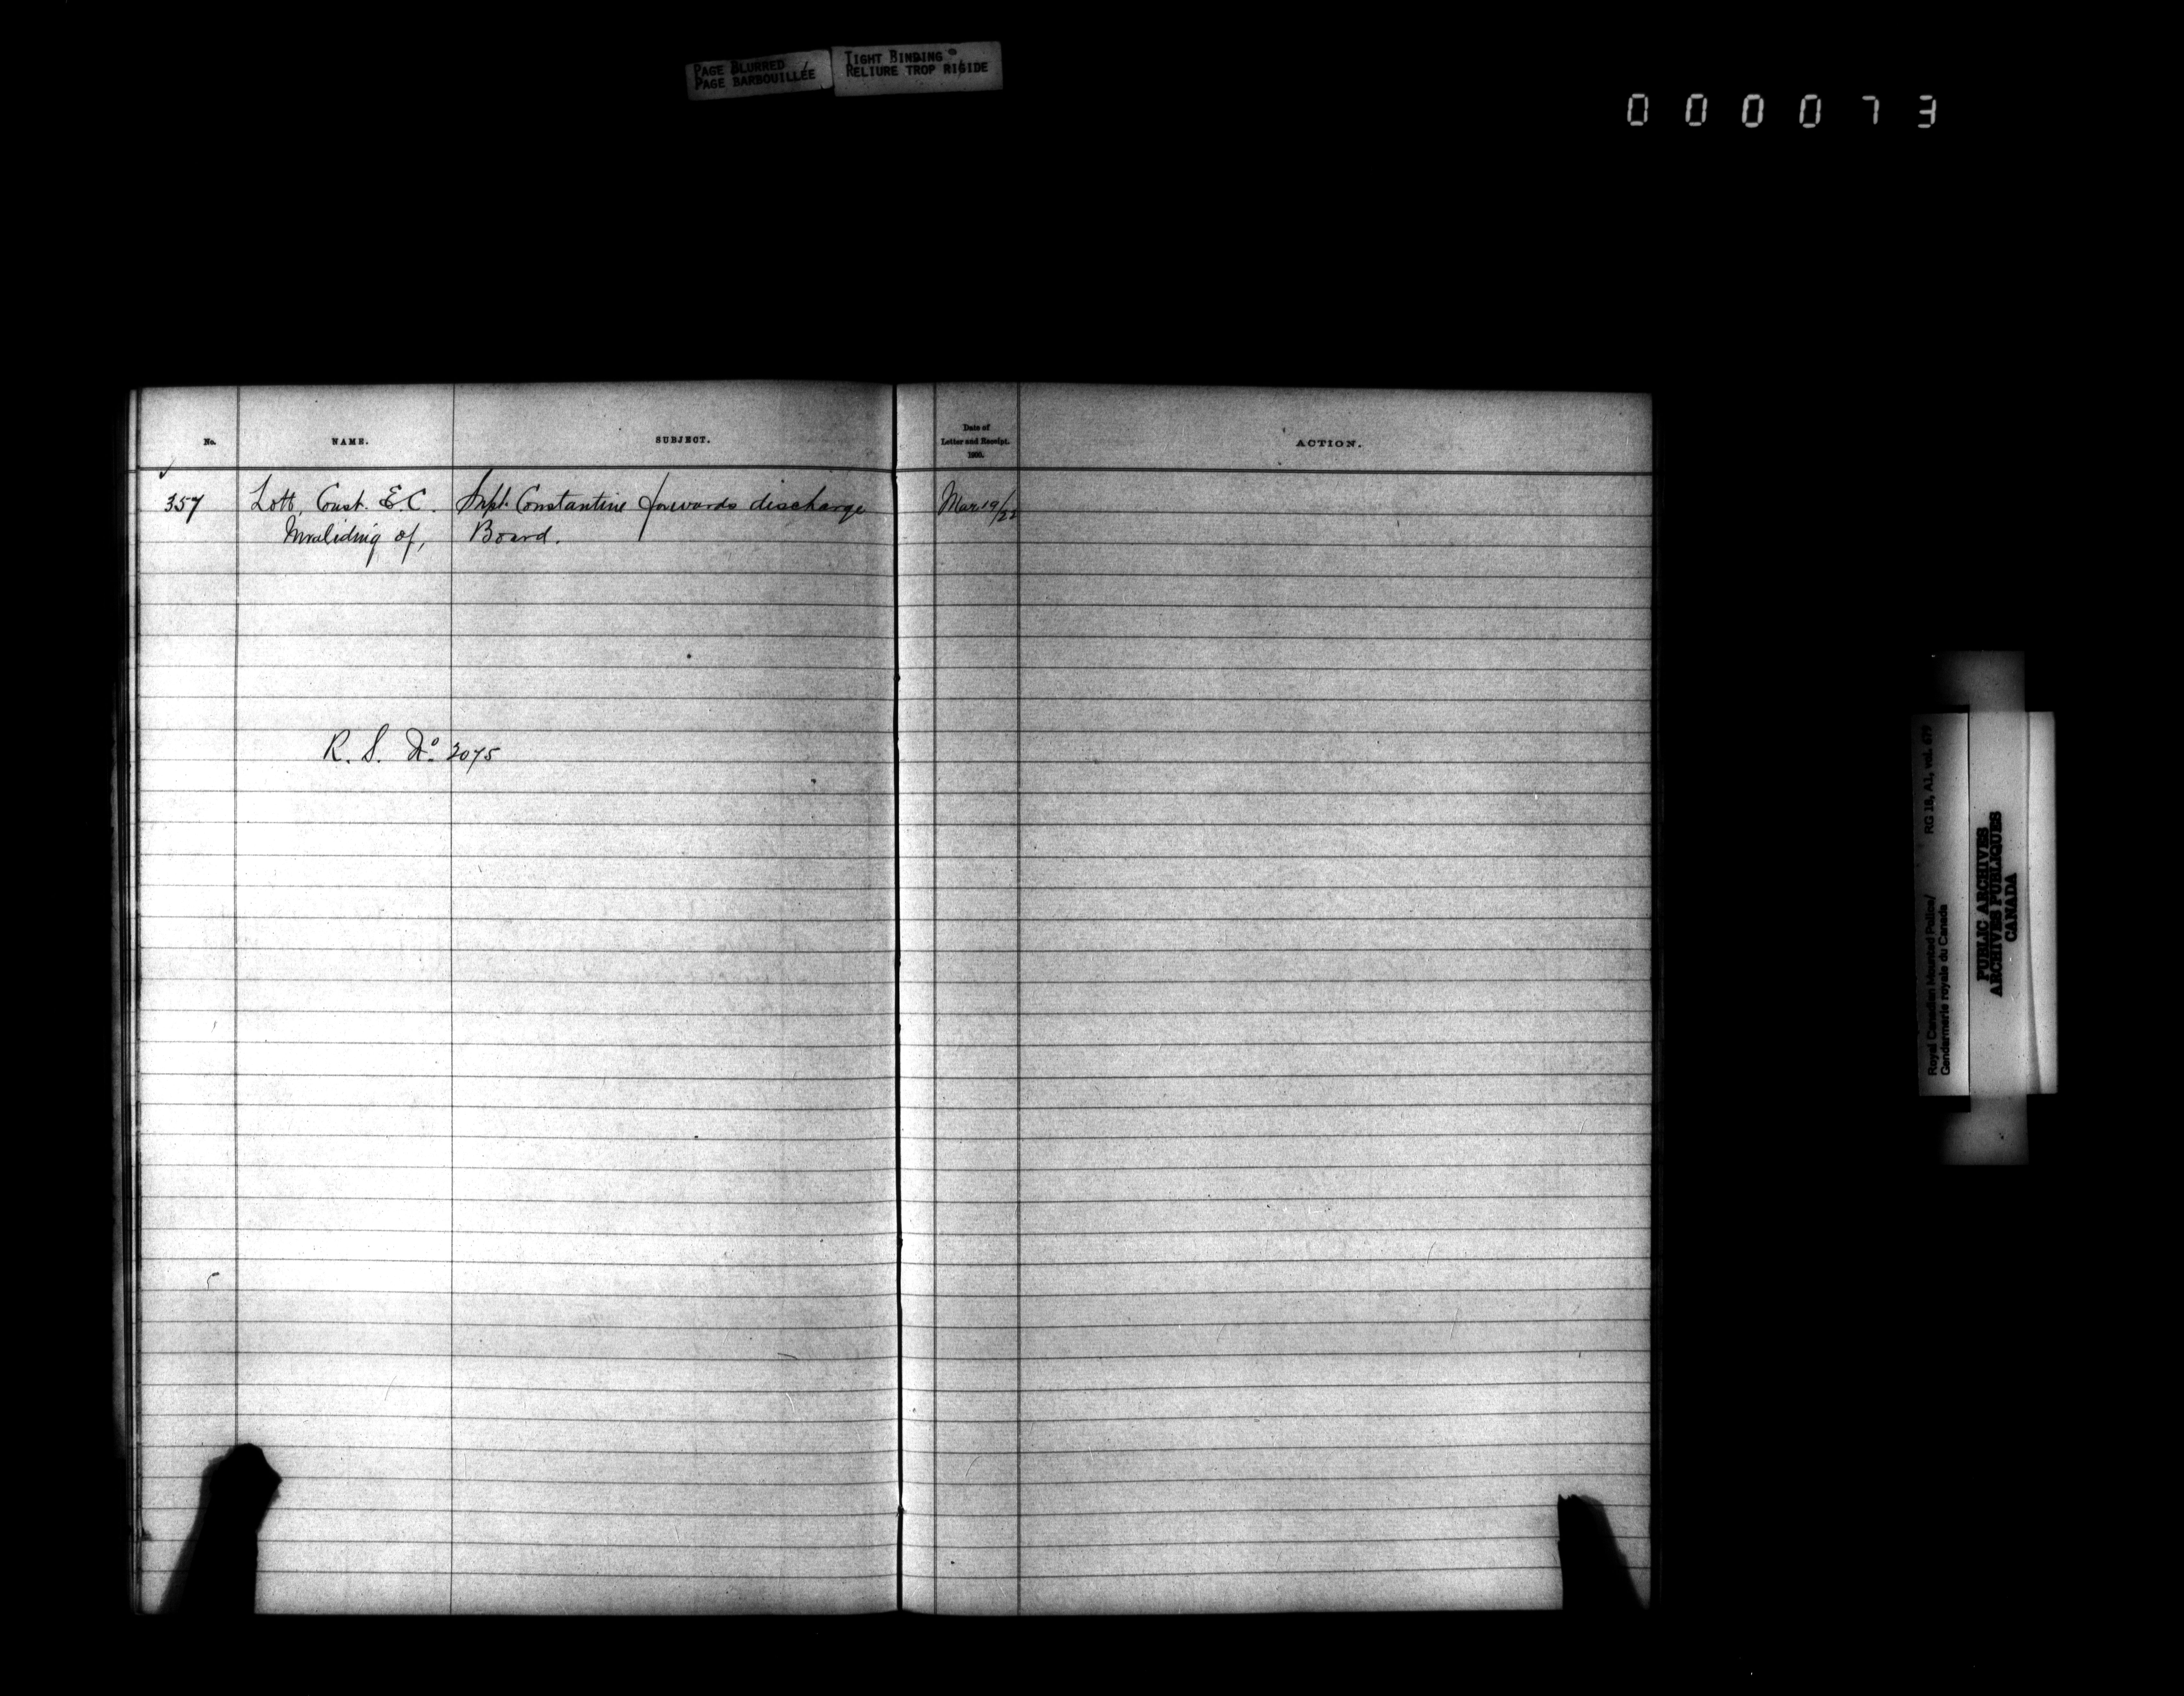 PAGE BLURRED
PAGE BARBOUILLÉE
TIGHT BINDING
RELIURE TROP RIGIDE
000073
No.
NAME.
SUBJECT.
Date of
Letter and Receipt.
1900.
ACTION.
357 Lott, Const. E.C. Supt. Constantine forwards discharge Mar 19/22
Invaliding of, Board.
R. S. No. 3075
Royal Canadian Mounted Police/ RG 18, A1, vol. 679
Gendarmerie royale du Canada
PUBLIC ARCHIVES
ARCHIVES PUBLIQUES
CANADA